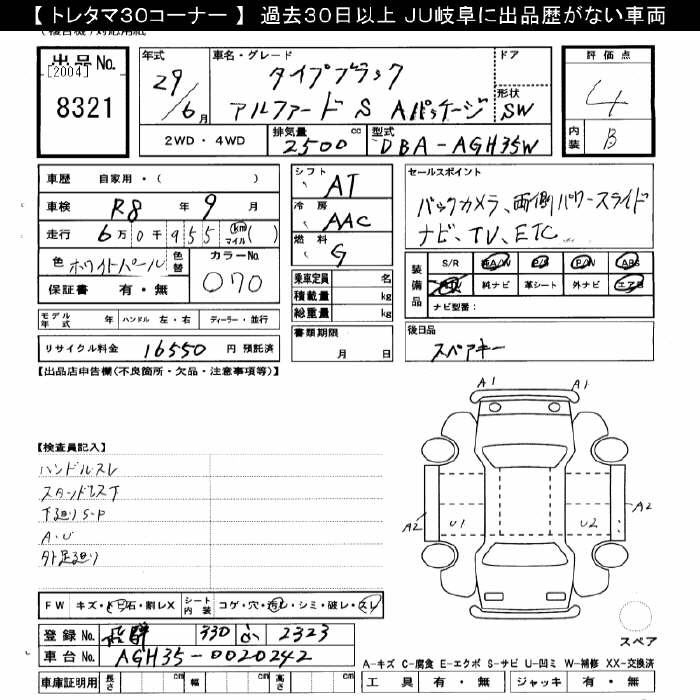 【 トレタマ30コーナー 】 過去30日以上 JU岐阜に出品歴がない車両
出品No.
[2004]
8321
年式
29/6月
車名・グレード
タイプブラック
アルファード S Aパッケージ
ドア
形状
SW
評価点
4
内装
B
2WD・4WD
排気量
2500cc
型式
DBA-AGH35W
車歴 自家用・( )
車検 R8 年 9 月
走行 6万0千955 (km マイル)( )
色 ホワイトパール 色替
カラーNo.
070
保証書 有・無
シフト
AT
冷房
AAC
燃料
G
セールスポイント
バックカメラ、両側パワースライド
ナビ、TV、ETC
装備品
S/R 純A/W P/S P/W ABS
純ナビ 革シート 外ナビ エアB
ナビ型番:
乗車定員 名
積載量 kg
総重量 kg
モデル年式 年 ハンドル 左・右 ディーラー・並行
リサイクル料金 16550 円 預託済
書類期限
月 日
後日品
スペアキー
【出品店申告欄(不良箇所・欠品・注意事項等)】
【検査員記入】
ハンドルスレ
下廻りS-P
A・U
外足廻り
A1 A1
A2 U1 U2 A2
FW キズ・トビ石・割レX シート内装 コゲ・穴・汚レ・シミ・破レ・スレ
登録No. 飛騨 330 2323
車台No. AGH35-0020242
スペア
A-キズ C-腐食 E-エクボ S-サビ U-凹ミ W-補修 XX-交換済
車庫証明用 長さ cm 幅 cm 高さ cm
工具 有・無 ジャッキ 有・無